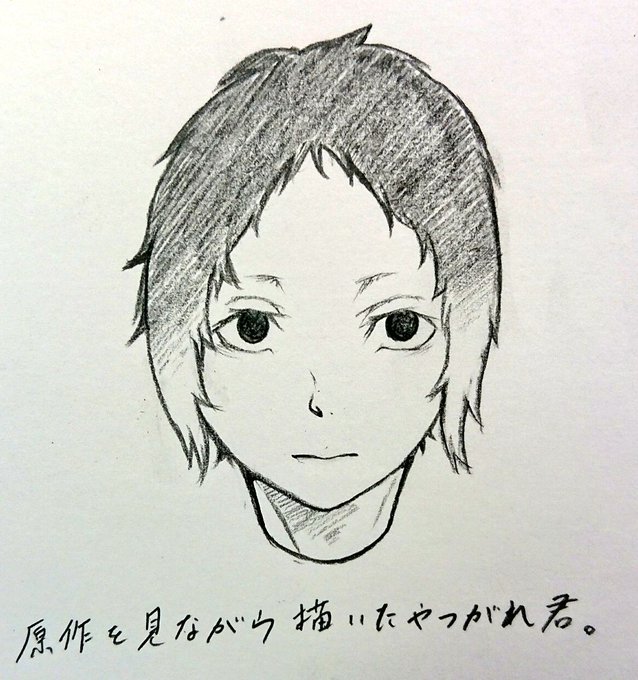 原作を見ながら描いたやつがれ君。